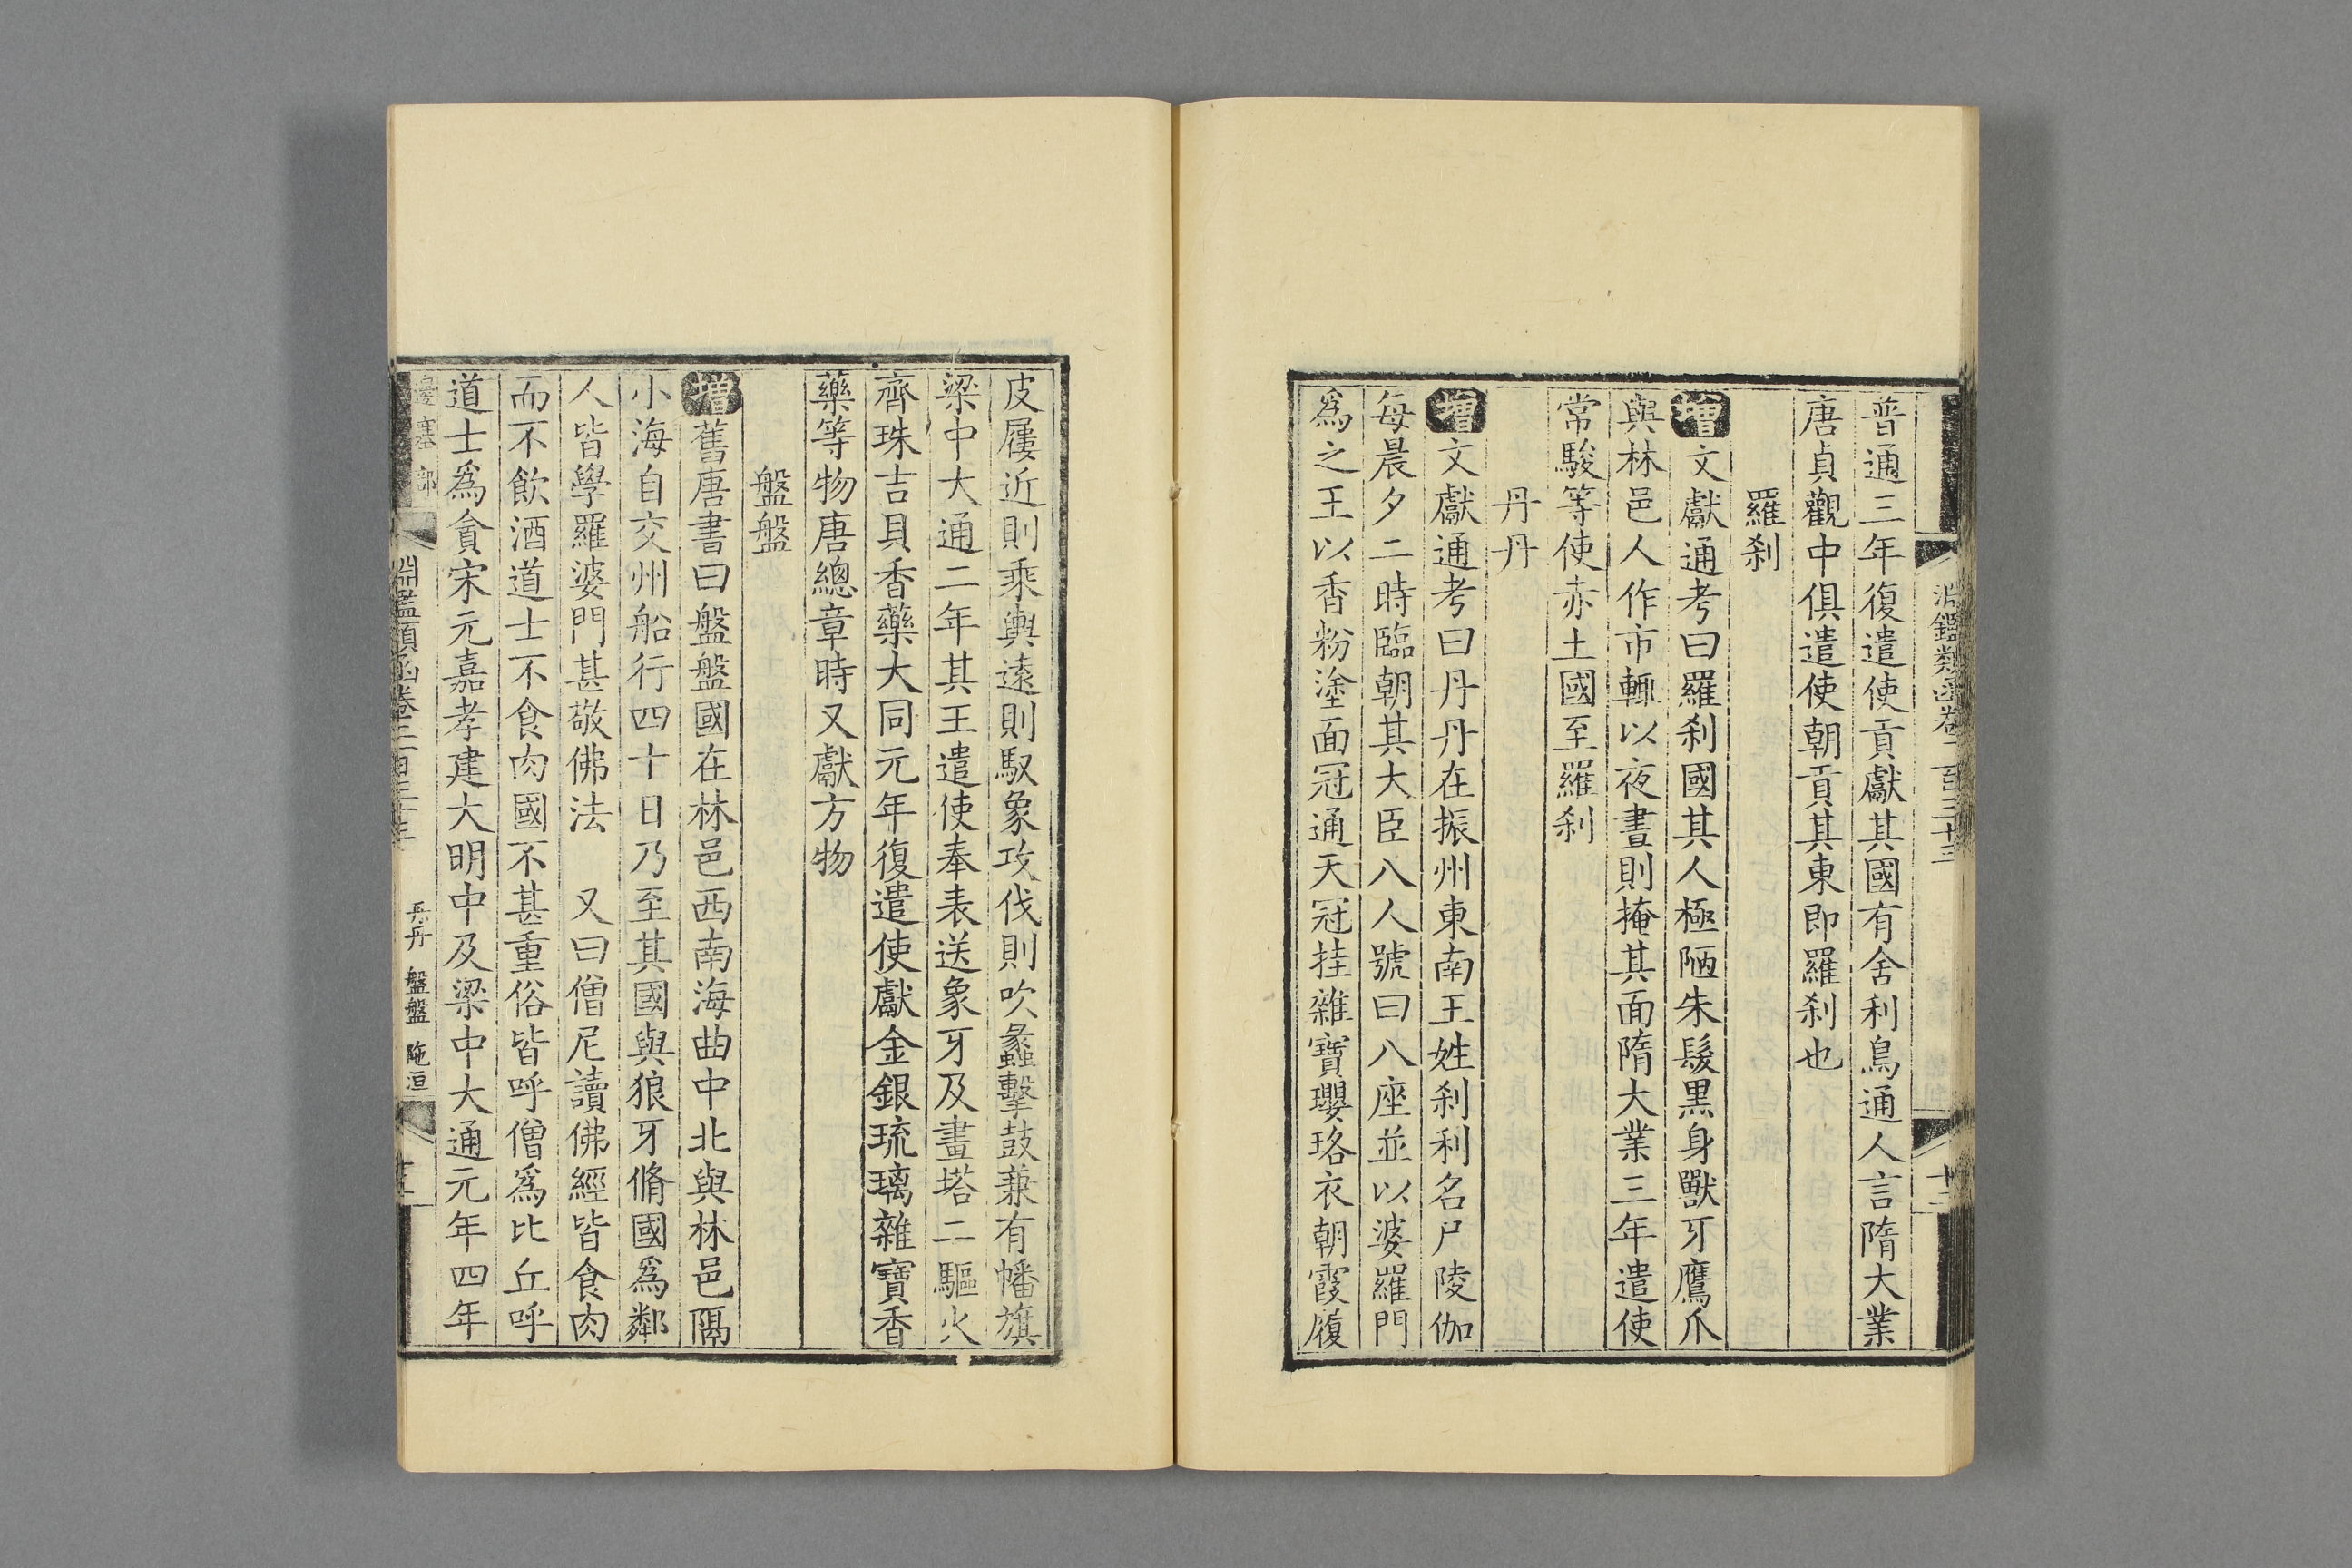 淵鑑類函卷二百三十三
普通三年復遣使貢獻其國有舍利鳥通人言隋大業
唐貞觀中俱遣使朝貢其東即羅刹也
羅刹
增文獻通考曰羅刹國其人極陋朱髮黑身獸牙鷹爪
與林邑人作市輒以夜晝則掩其面隋大業三年遣使
常駿等使赤土國至羅刹
丹丹
增文獻通考曰丹丹在振州東南王姓刹利名尸陵伽
每晨夕二時臨朝其大臣八人號曰八座並以婆羅門
爲之王以香粉塗面冠通天冠挂雜寶瓔珞衣朝霞履
皮屨近則乘輿遠則馭象攻伐則吹蠡擊鼓兼有幡旗
梁中大通二年其王遣使奉表送象牙及畫塔二驅火
齊珠吉貝香藥大同元年復遣使獻金銀琉璃雜寶香
藥等物唐總章時又獻方物
盤盤
增舊唐書曰盤盤國在林邑西南海曲中北與林邑隔
小海自交州船行四十日乃至其國與狼牙脩國爲鄰
人皆學羅婆門甚敬佛法 又曰僧尼讀佛經皆食肉
而不飲酒道士不食肉國不甚重俗皆呼僧爲比丘呼
道士爲貪宋元嘉孝建大明中及梁中大通元年四年
邊塞部 淵鑑類函卷二百三十三 丹丹 盤盤 陁洹